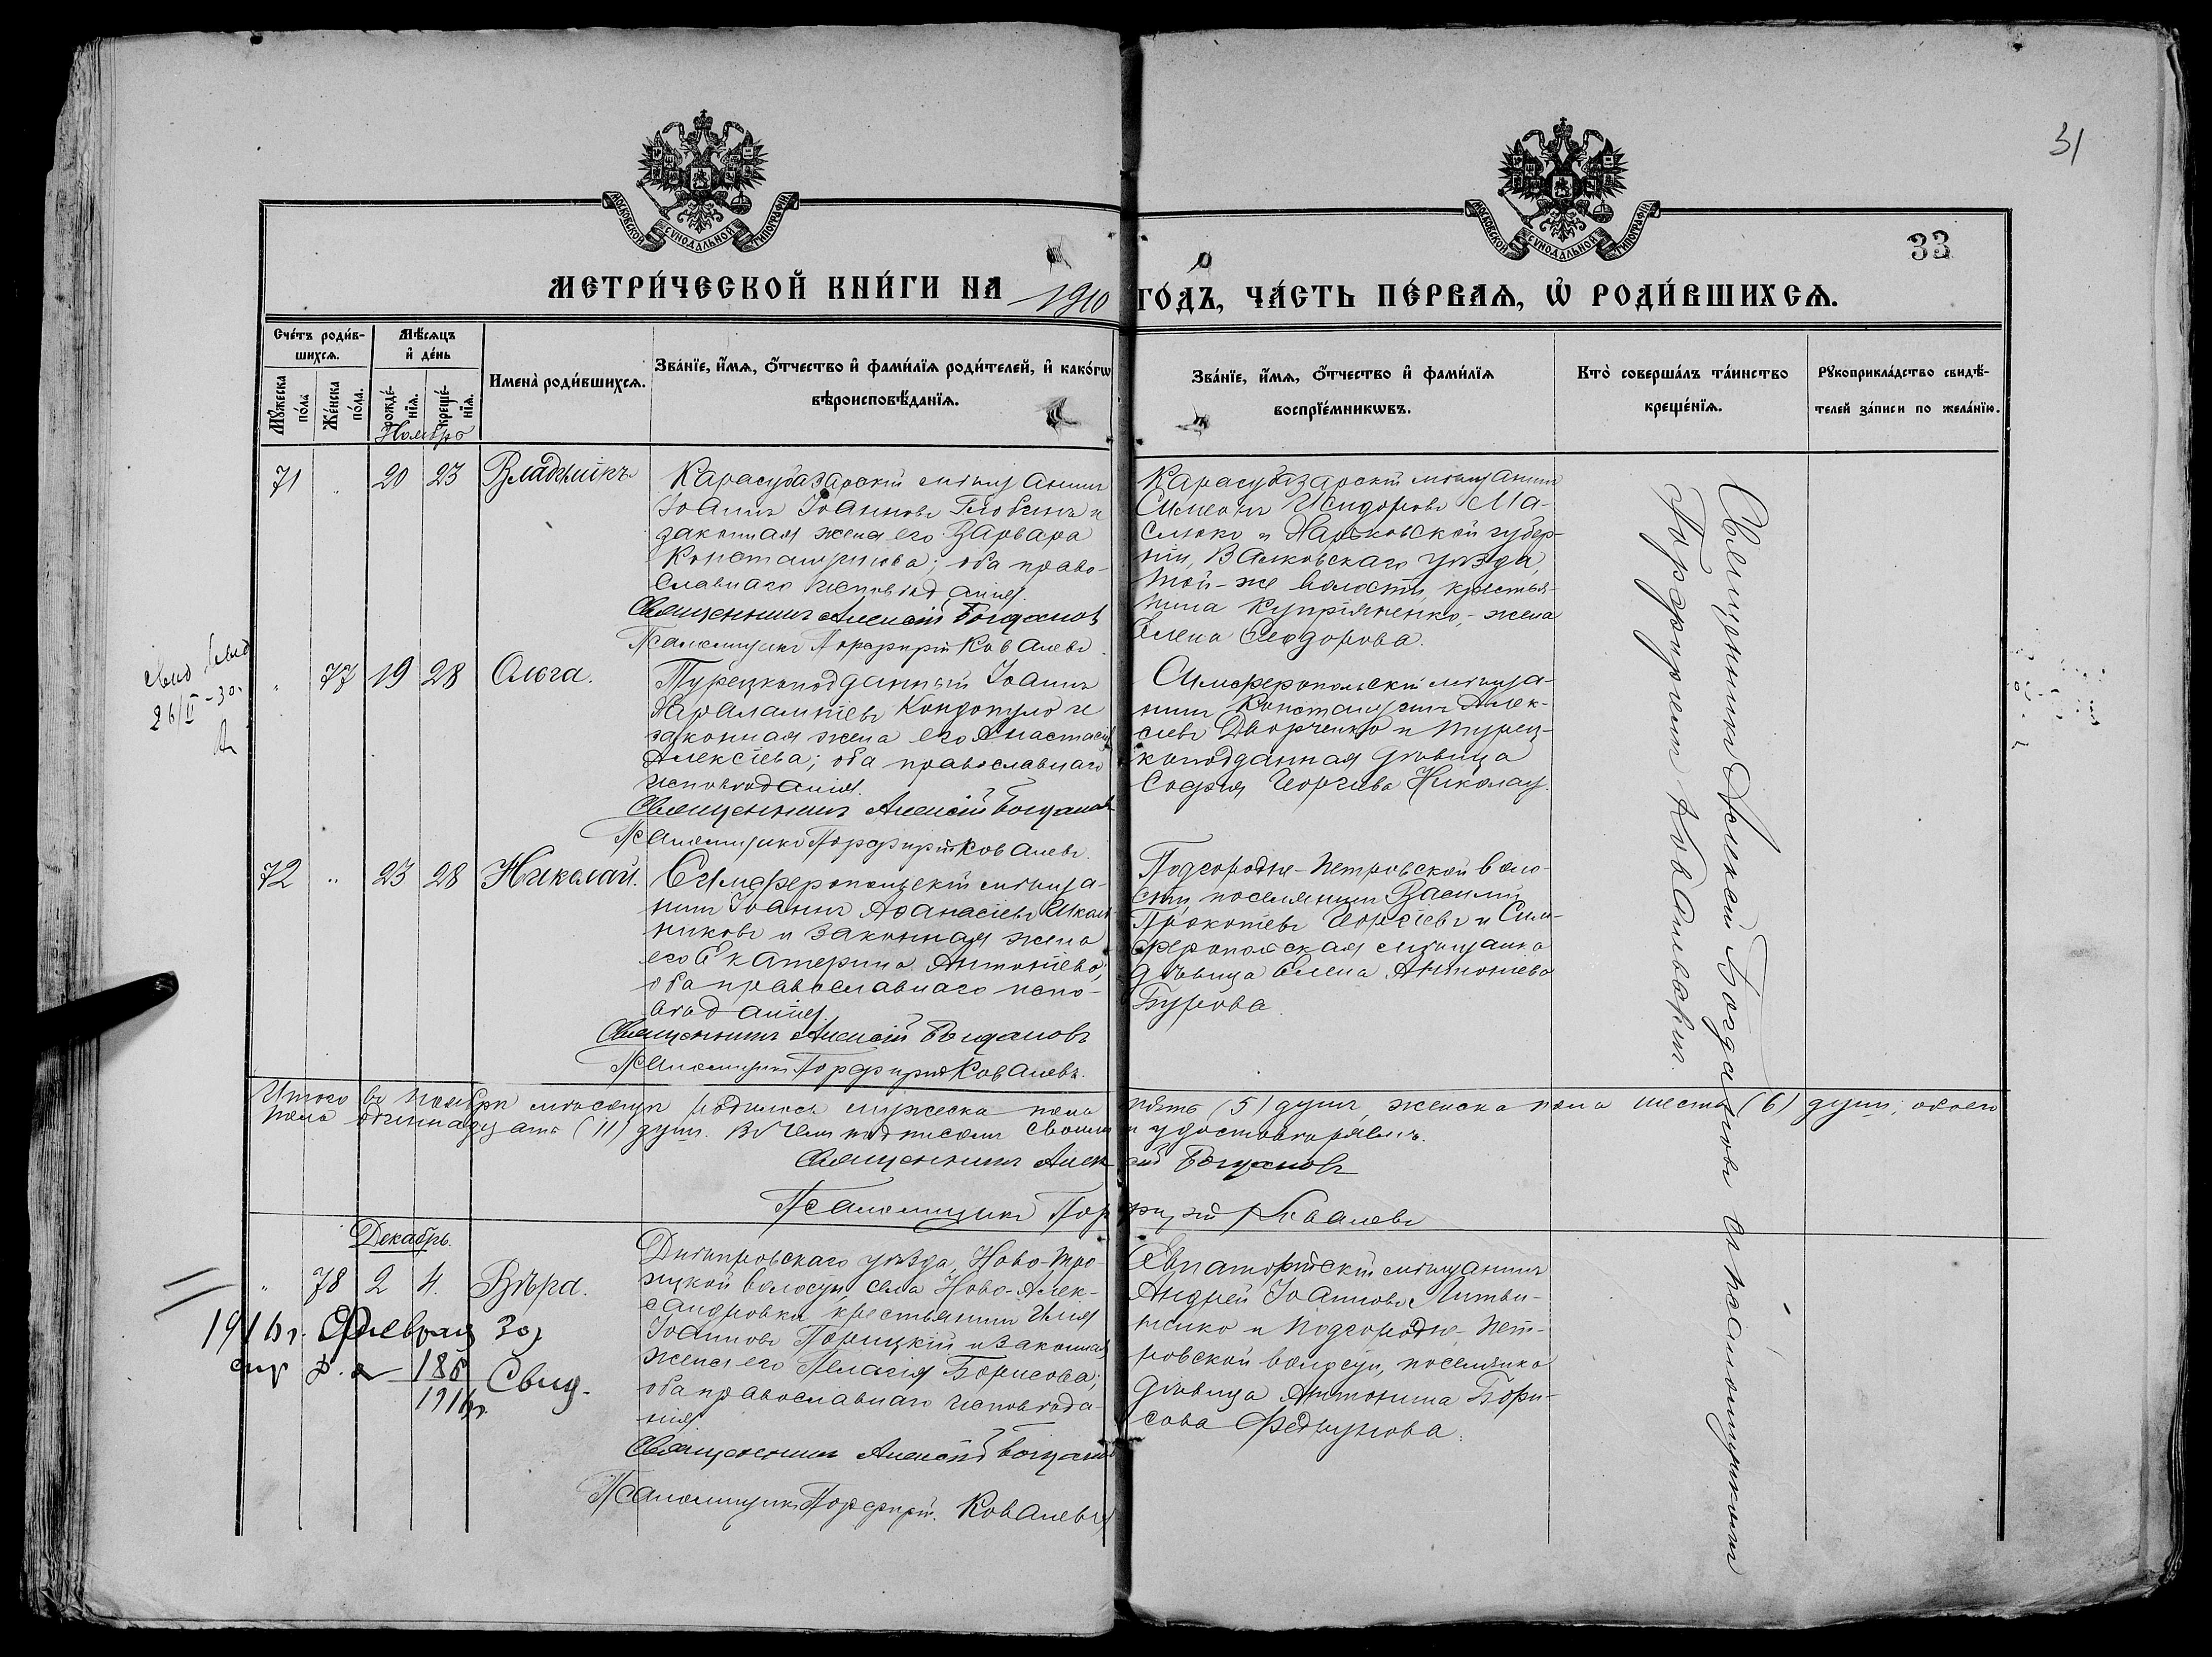 31
33
МОСКОВСКОЙ СУНОДАЛЬНОЙ ТИПОГРАФІИ
МОСКОВСКОЙ СУНОДАЛЬНОЙ ТИПОГРАФІИ
МЕТРИ́ЧЕСКОЙ КНИ́ГИ НА 1910 ГО́ДЪ, ЧА́СТЬ ПЕ́РВАЯ, Ѽ РОДИ́ВШИХСЯ.
Сче́тъ роди́в-
шихся.
Мѣсяцъ
и҆ де́нь
Мꙋ́жеска
по́ла
Же́нска
по́ла.
рожде́-
нїя.
креще́-
нїя.
Имена̀ роди́вшихся.
Зва́нїе, и҆́мя, ѻ҆́тчество и҆ фами́лїя роди́телей, и҆ како́гѡ
вѣроисповѣ́данїя.
Зва́нїе, и҆́мя, ѻ҆́тчество и҆ фами́лїя
воспрїе́мникѡвъ.
Кто̀ соверша́лъ та́инство
креще́нїя.
Рꙋкоприкла́дство свидѣ́-
телей за́писи по жела́нїю.
Ноябрь
71 " 20 23 Владиміръ
Карасубазарскій мѣщанинъ
Іоаннъ Іоанновъ и
законная жена его Варвара
Константинова; оба право-
славнаго исповѣданія.
Священникъ Алексій Богданов
Псаломщикъ Порфирій Ковалевъ.
Карасубазарскій мѣщанинъ
Симеонъ Исидоровъ Ма-
слюкъ и Харьковской губер-
ніи, Валковскаго уѣзда,
той-же волости, крестья-
нина Купріяненко, - жена
Елена Ѳеодорова.
" 77 19 28 Ольга.
26/II - 30.
Турецкоподданный Іоаннъ
Харалампіевъ Кондопуло и
законная жена его Анастасія
Алексіева; оба православнаго
исповѣданія.
Священникъ Алексій Богданов
Псаломщикъ Порфирій Ковалевъ.
Симферопольскій мѣща-
нинъ Константинъ Алек-
сіевъ Дворченко и турец-
коподданная дѣвица
Софія Георгіева Николау.
72 " 23 28 Николай.
Симферопольскій мѣща-
нинъ Іоаннъ Аѳанасіевъ Школь-
никовъ и законная жена
его Екатерина Антоніева;
оба православнаго испо-
вѣданія.
Священникъ Алексій Богдановъ
Псаломщикъ Порфирій Ковалевъ.
Подгородне-Петровской воло-
сти, поселянинъ Василій
Прокопіевъ и Сим-
феропольская мѣщанка
дѣвица Елена Антоніева
Бурова.
Итого въ Ноябрѣ мѣсяцѣ родилось мужеска пола пять (5) душъ, женска пола шесть (6) душъ, обоего
пола одиннадцать (11) душъ. Въ чемъ подписомъ своимъ и удостовѣряемъ.
Священникъ Алексій Богдановъ
Псаломщикъ Порфирій Ковалевъ
Декабрь.
" 78 2 4. Вѣра.
1916 г. Февраля
186
1916 г.
Днѣпровскаго уѣзда, Ново-Тро-
ицкой волости, села Ново-Алек-
сандровки крестьянинъ Илія
Іоанновъ и законная
жена его Пелагія Борисова;
оба православнаго исповѣда-
нія
Священникъ Алексій Богданов
Псаломщикъ Порфирій Ковалевъ
Евпаторійскій мѣщанинъ
Андрей Іоанновъ Литви-
ненко и Подгородне-Пет-
ровской волости, поселянка
дѣвица Антонина Бори-
сова
Священникъ Алексій Богдановъ съ псаломщикомъ
Порфиріемъ Ковалевымъ.